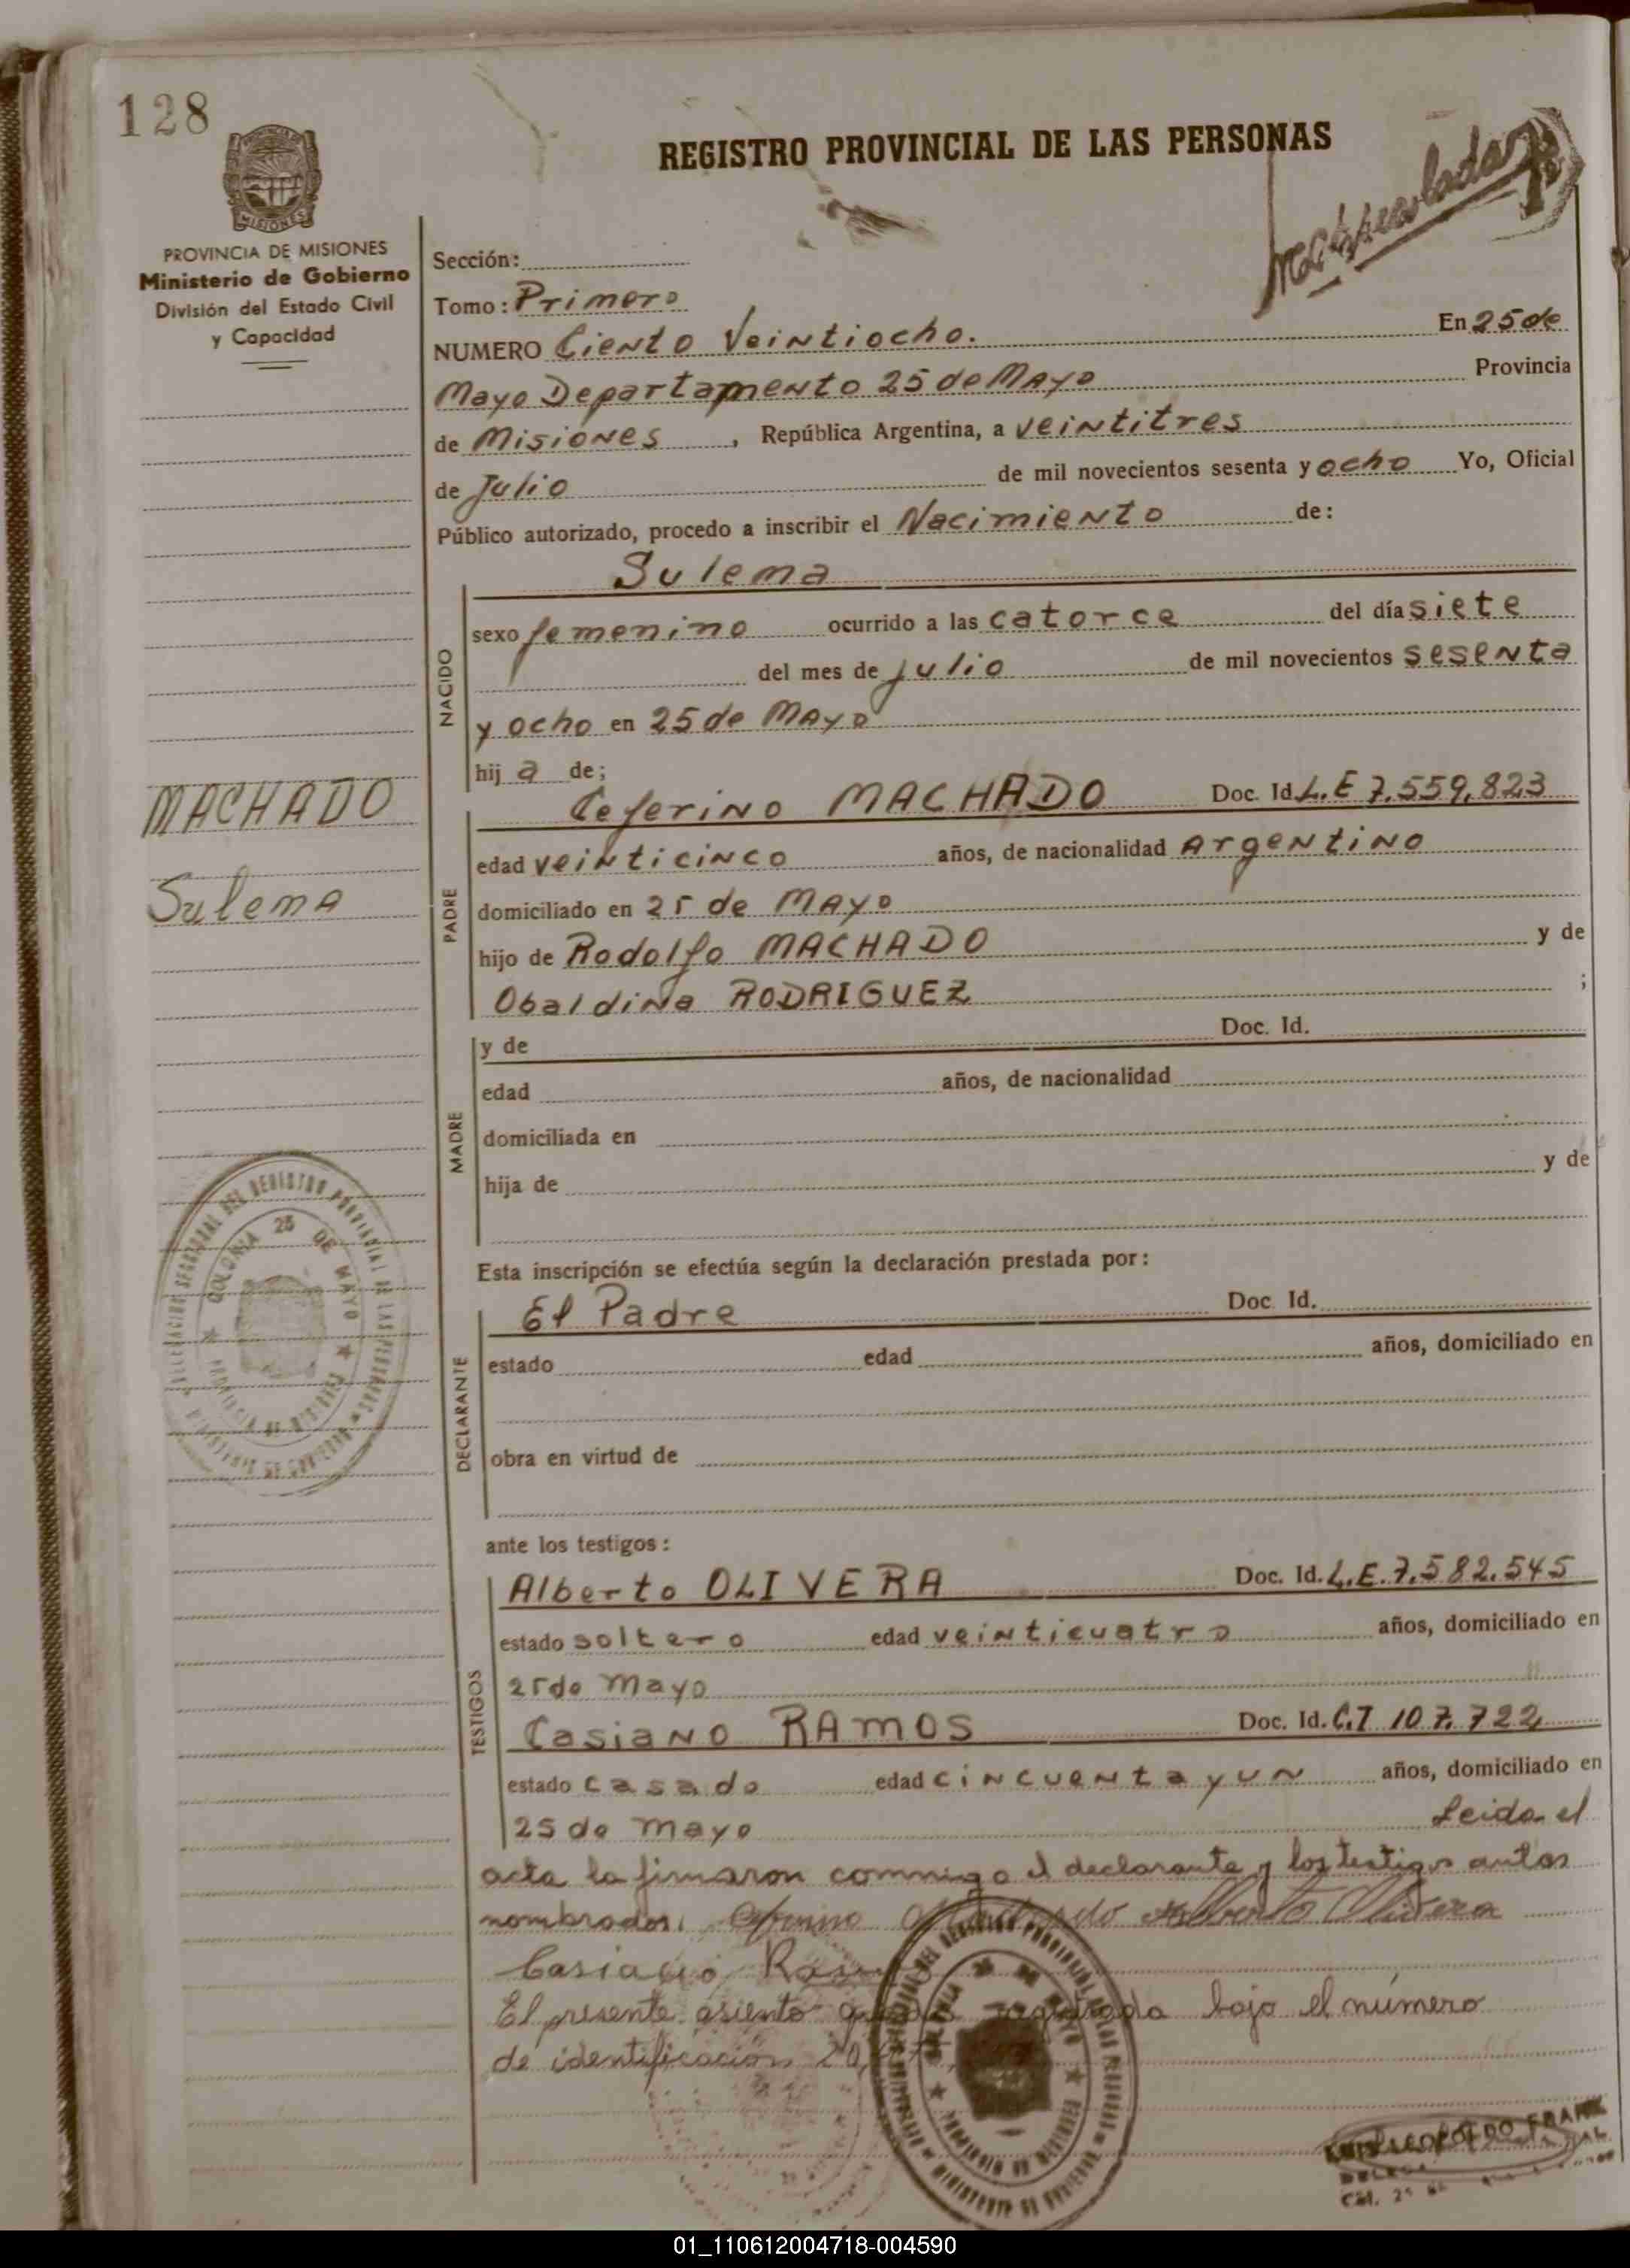 128
PROVINCIA DE MISIONES
Ministerio de Gobierno
División del Estado Civil
y Capacidad
MACHADO
Sulema
REGISTRO PROVINCIAL DE LAS PERSONAS
Sección:
Tomo: Primero
NUMERO Ciento Veintiocho. En 25 de
Mayo Departamento 25 de Mayo Provincia
de Misiones, República Argentina, a veintitres
de Julio de mil novecientos sesenta y ocho Yo, Oficial
Público autorizado, procedo a inscribir el Nacimiento de:
NACIDO
Sulema
sexo femenino ocurrido a las catorce del día siete
del mes de julio de mil novecientos sesenta
y ocho en 25 de Mayo
hij a de;
PADRE
Ceferino MACHADO Doc. Id. L.E 7.559.823
edad veinticinco años, de nacionalidad Argentino
domiciliado en 25 de Mayo
hijo de Rodolfo MACHADO y de
Obaldina RODRIGUEZ ;
MADRE
y de Doc. Id.
edad años, de nacionalidad
domiciliada en
hija de y de
Esta inscripción se efectúa según la declaración prestada por:
DECLARANTE
El Padre Doc. Id.
estado edad años, domiciliado en
obra en virtud de
ante los testigos:
TESTIGOS
Alberto OLIVERA Doc. Id. L.E. 7.582.545
estado soltero edad veinticuatro años, domiciliado en
25 de Mayo
Casiano RAMOS Doc. Id. C.I 107.722
estado casado edad cincuenta y un años, domiciliado en
25 de Mayo Leida el
acta la firmaron conmigo el declarante y los testigos antes
nombrados. Machado Alberto Olivera
Casiano Ramos
El presente asiento registrada bajo el número
de identificación
COLONIA 25 DE MAYO
01_110612004718-004590